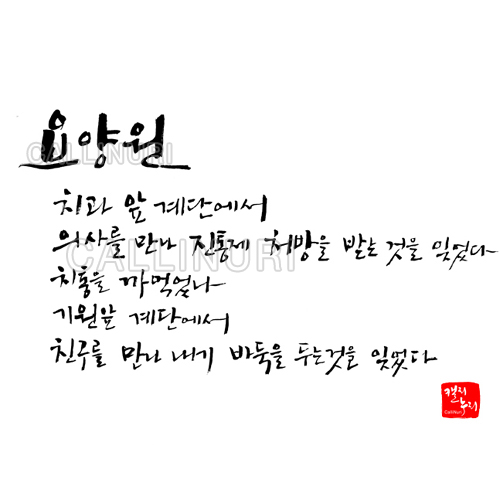 요양원
CALLINURI
치과 앞 계단에서
의사를 만나 진통제 처방을 받는 것을 잊었다
CALLINURI
치통을 까먹었나
기원앞 계단에서
친구를 만나 내기 바둑을 두는것을 잊었다
캘리
누리
CalliNuri